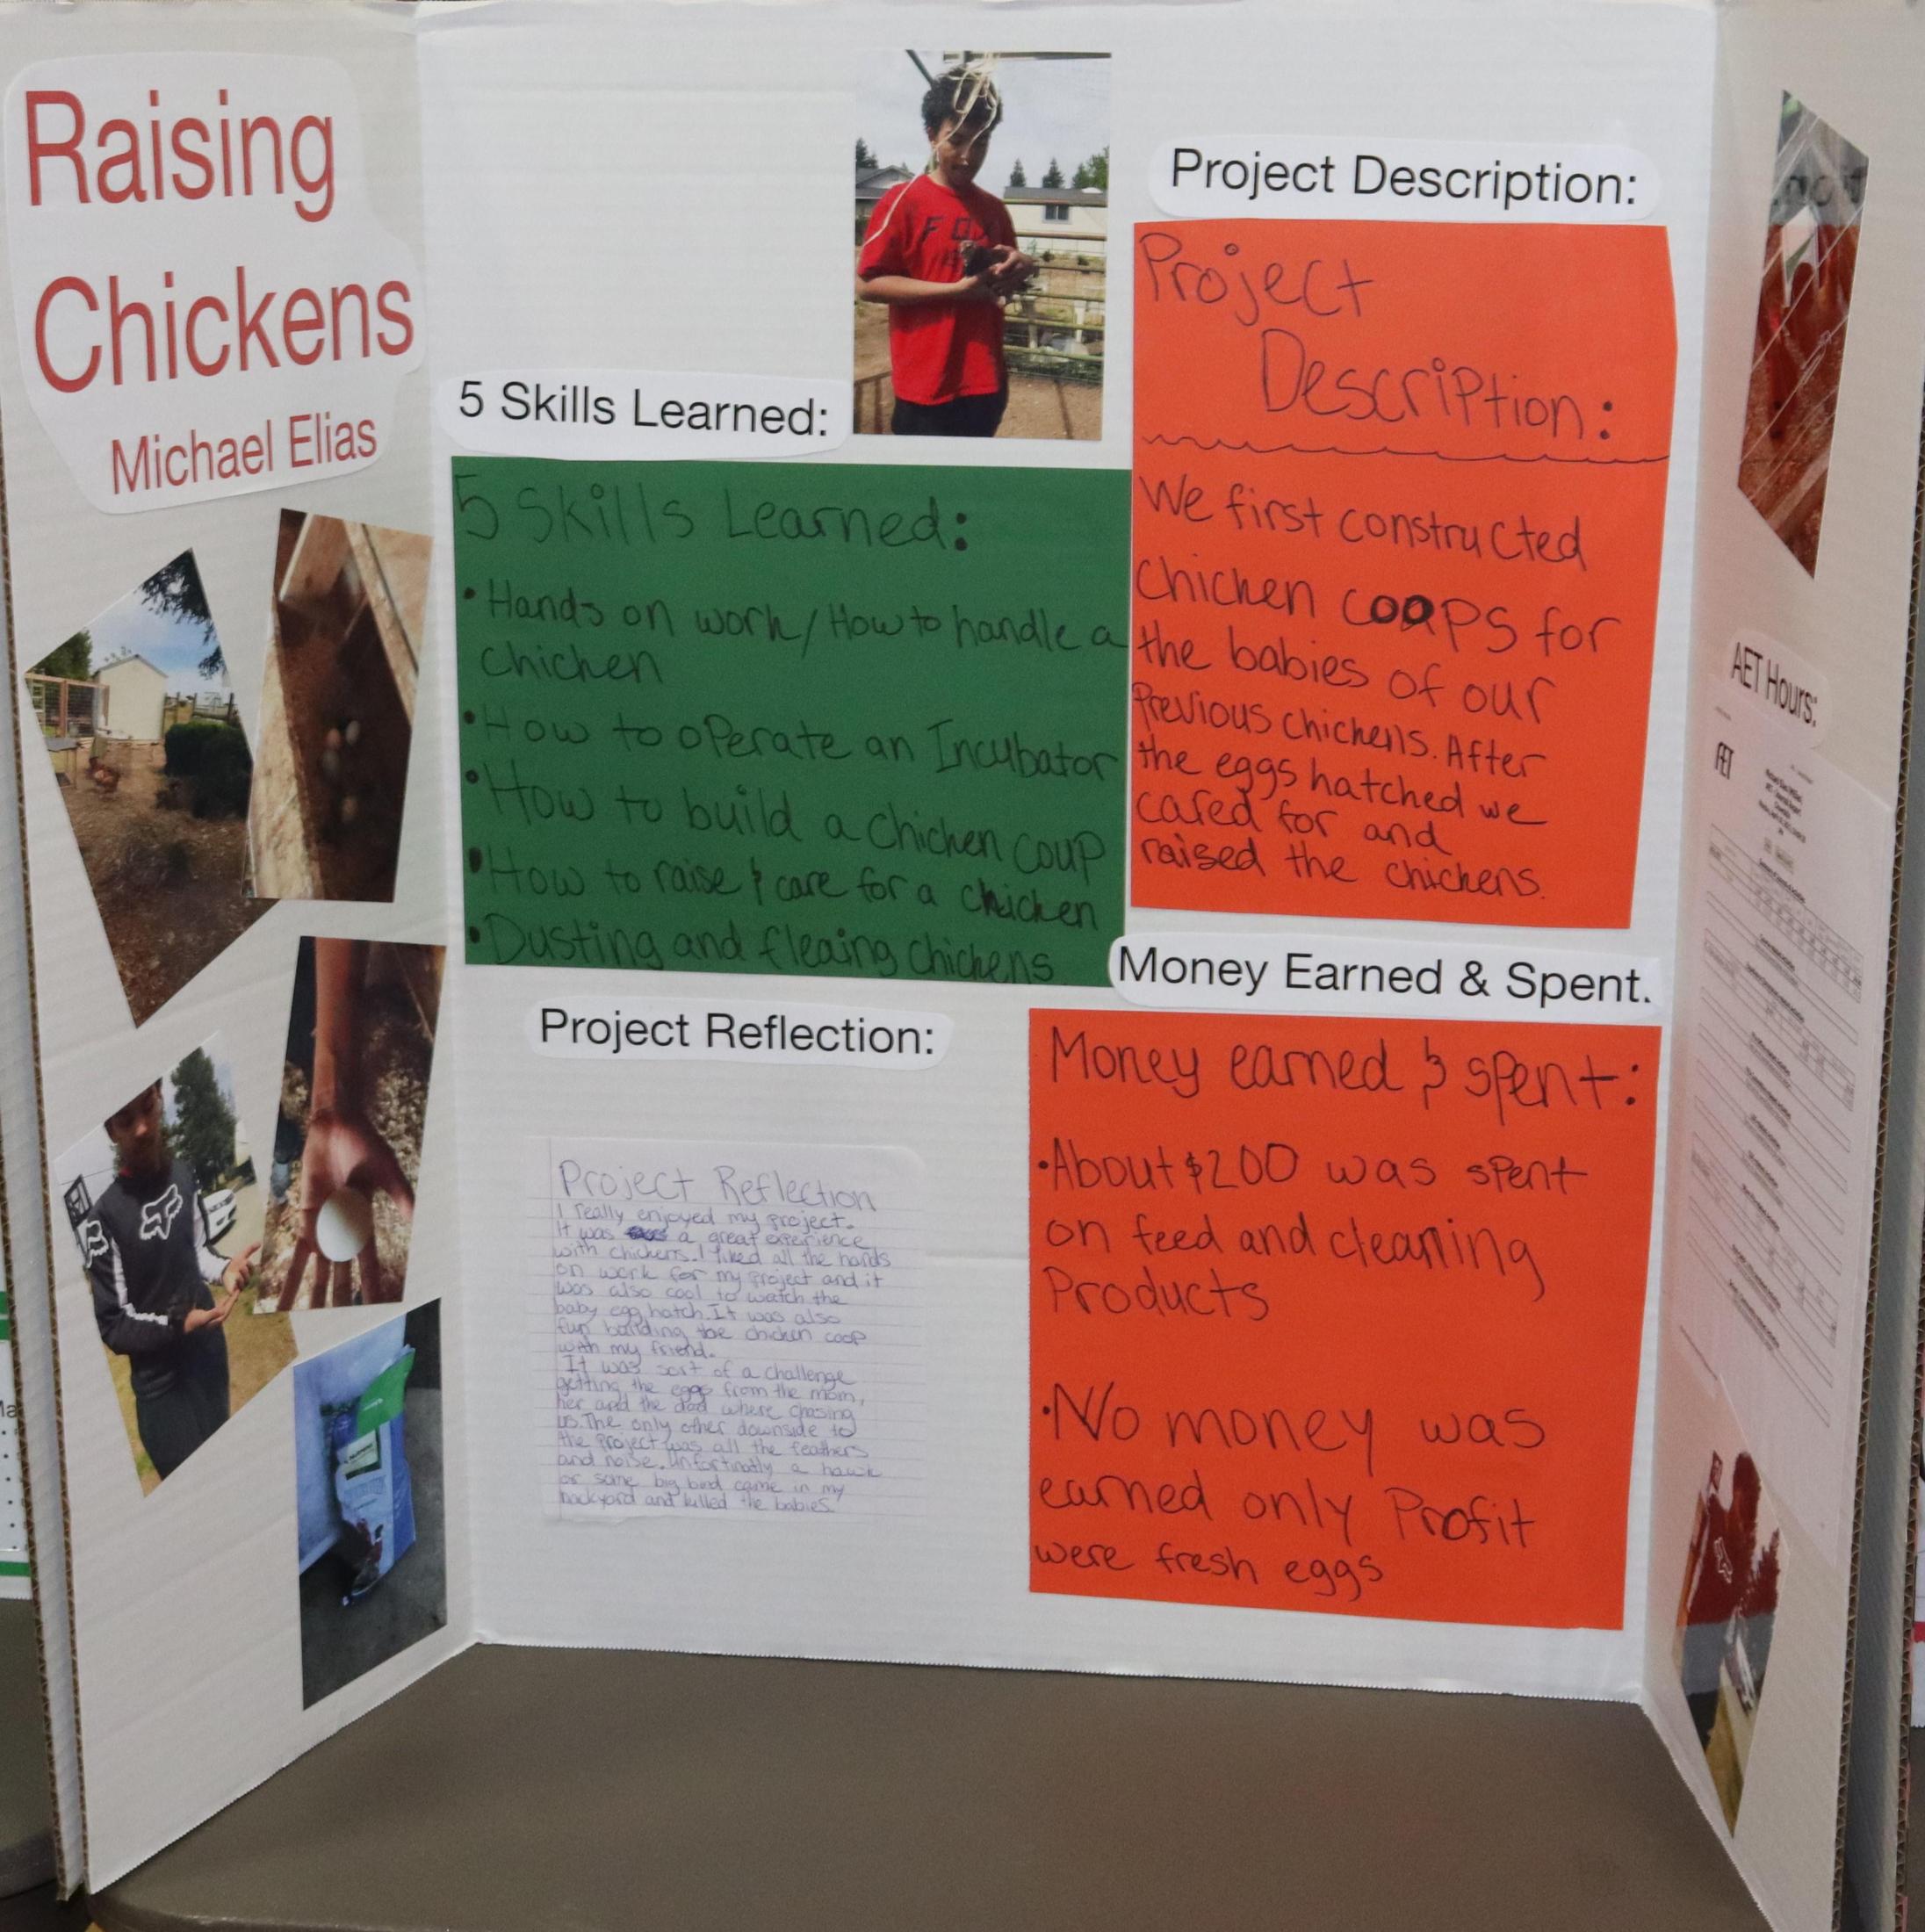 Raising
Chickens
Michael Elias
5 Skills Learned:
5 Skills Learned:
• Hands on work/How to handle a
chicken
• How to operate an Incubator
• How to build a chicken coup
• How to raise & care for a chicken
• Dusting and fleaing chickens
Project Reflection:
Project Reflection
I really enjoyed my project.
It was a great experience
with chickens. I liked all the hands
on work for my project and it
was also cool to watch the
baby egg hatch. It was also
fun building the chicken coop
with my friend.
It was sort of a challenge
getting the eggs from the mom,
her and the dad where chasing
us. The only other downside to
the project was all the feathers
and noise. Unfortinatly a hawk
or some big bird came in my
backyard and killed the babies.
Project Description:
Project
Description:
We first constructed
chicken coops for
the babies of our
previous chickens. After
the eggs hatched we
cared for and
raised the chickens.
Money Earned & Spent.
Money earned & spent:
• About $200 was spent
on feed and cleaning
Products
• No money was
earned only Profit
were fresh eggs
AET Hours:
AET
FOX